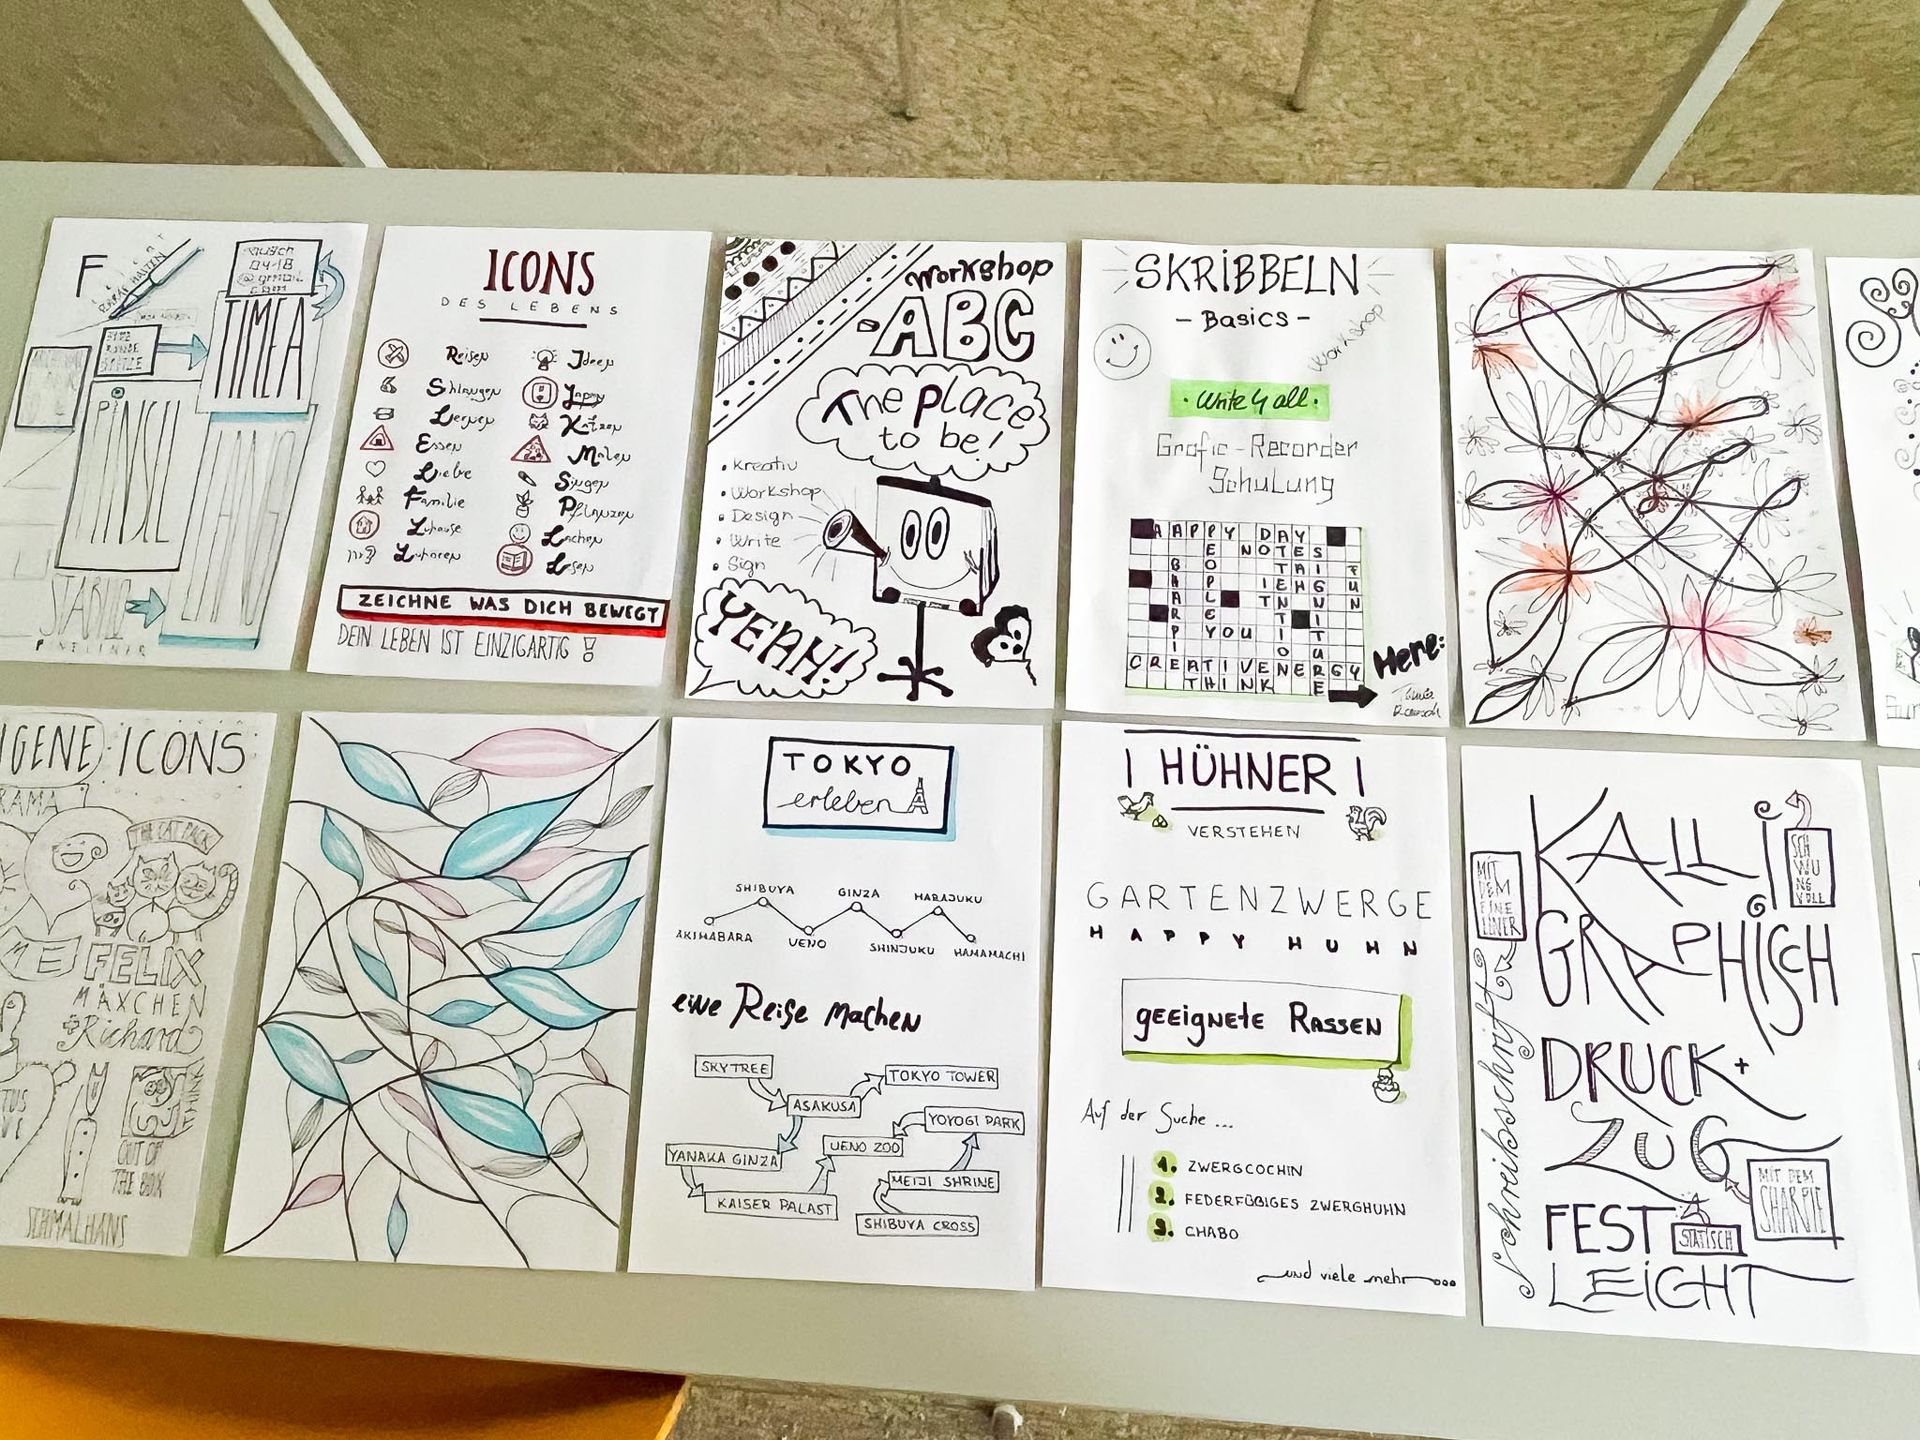 F
TIMEA
PINSEL
ICONS
DES LEBENS
Reisen
Ideen
Lernen
Katzen
Essen
Malen
Liebe
Singen
Familie
Pflanzen
Zuhause
Lachen
Zuhören
Lesen
ZEICHNE WAS DICH BEWEGT
DEIN LEBEN IST EINZIGARTIG !
Workshop
-ABC
The place
to be!
• Kreativ
• Workshop
• Design
• Write
• Sign
YEAH!
SKRIBBELN
- Basics -
Workshop
• write 4 all •
Grafic-Recorder
Schulung
HAPPY DAY
NOTES
YOU
CREATIVE ENERGY
THINK
Here:
EIGENE ICONS
THE CAT PACK
FELIX
MÄXCHEN
+ Richard
OUT OF
THE BOX
SCHMALHANS
TOKYO
erleben
SHIBUYA
GINZA
HARAJUKU
AKIHABARA
UENO
SHINJUKU
HAMAMACHI
eine Reise machen
SKYTREE
TOKYO TOWER
ASAKUSA
YOYOGI PARK
UENO ZOO
YANAKA GINZA
MEIJI SHRINE
KAISER PALAST
SHIBUYA CROSS
| HÜHNER |
VERSTEHEN
GARTENZWERGE
HAPPY HUHN
geeignete Rassen
Auf der Suche ...
1. ZWERGCOCHIN
2. FEDERFÜßIGES ZWERGHUHN
3. CHABO
und viele mehr...
KALLI
GRAPHISCH
SCHWUNGVOLL
MIT
DEM
FINE
LINER
Schreibschrift
DRUCK+
ZUG
MIT DEM
SHARPIE
FEST
STATISCH
LEICHT